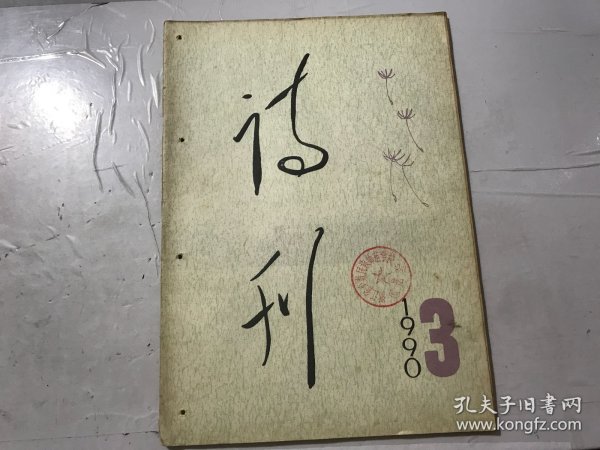 诗
刊
1990
3
孔夫子旧书网
www.kongfz.com